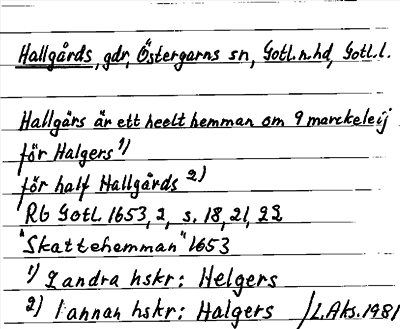 Hallgårds, gdr, Östergarns sn, Gotl.n.hd, Gotl.l.
Hallgårs är ett heelt hemman om 9 marckeleij
för Halgers 1)
för half Hallgårds 2)
RG Gotl 1653, 2, s. 18, 21, 22
"Skattehemman" 1653
1) I andra hskr: Helgers
2) I annan hskr: Halgers /L.Aks. 1981